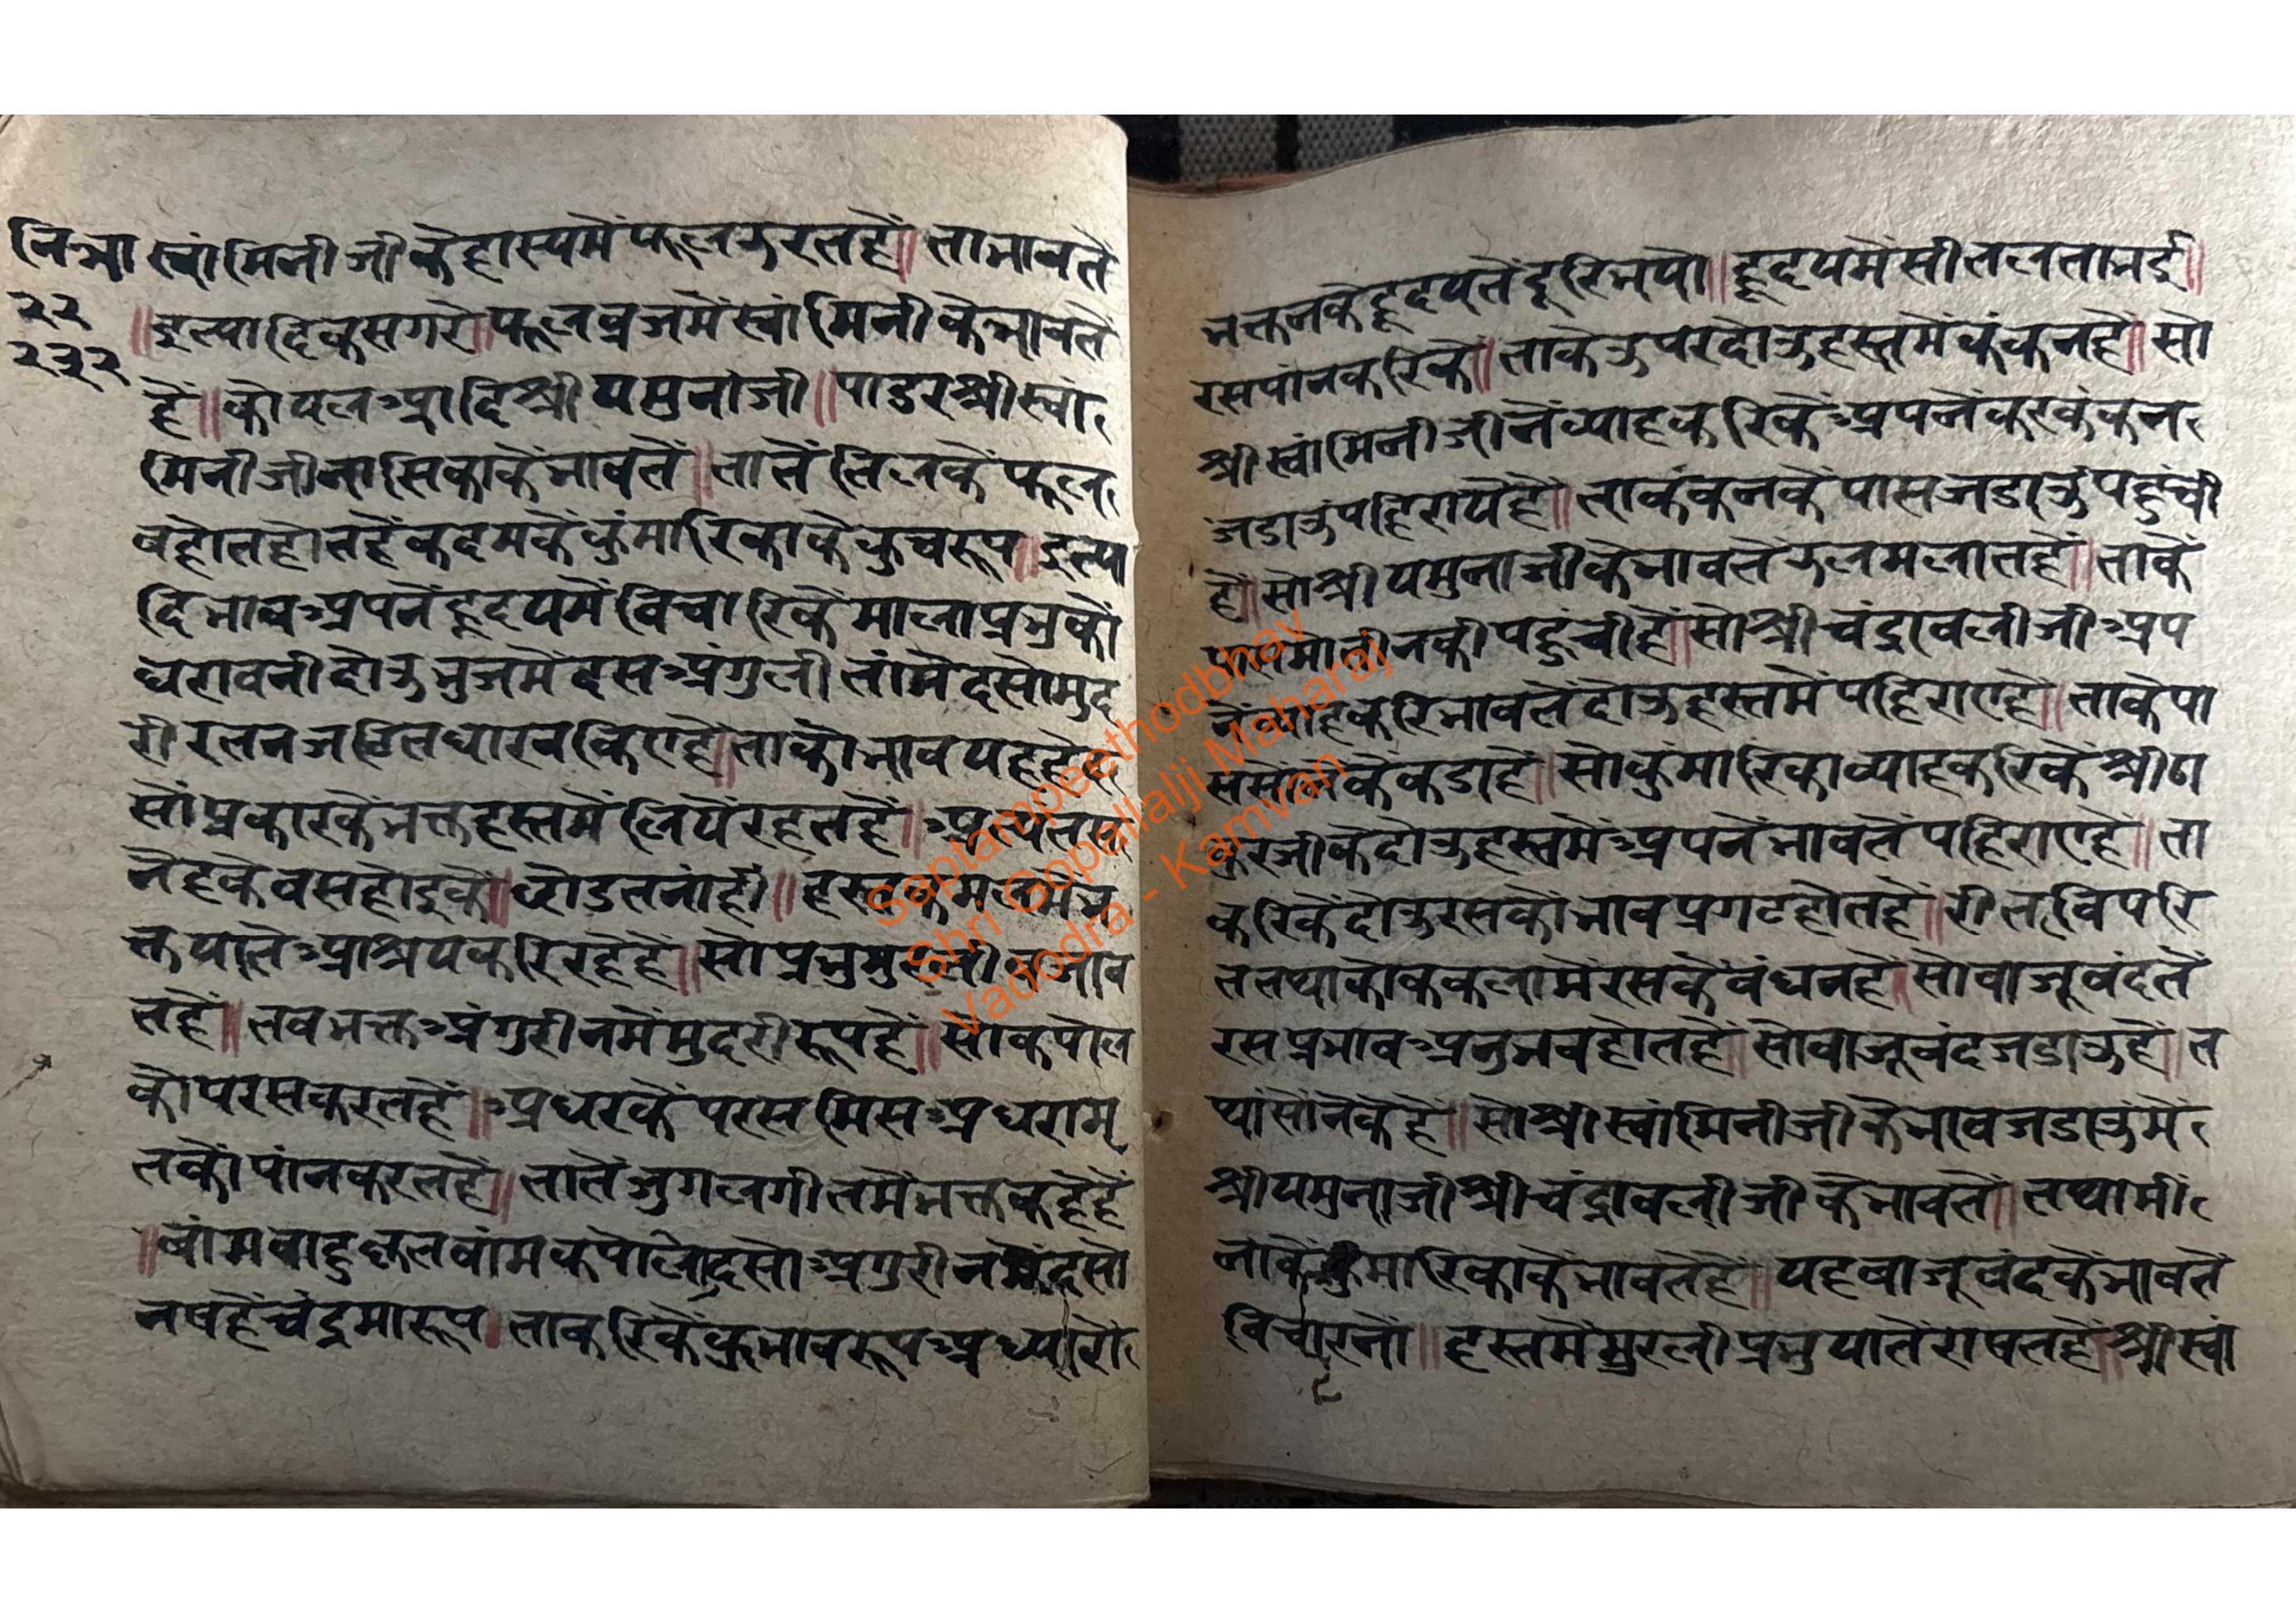 नि भा स्वांमिनीजीकेहास्यमेंफूलझरतहें॥ताभावतें
२२ ॥इत्यादिकसगरे॥फूलव्रजमेंस्वांमिनीकेभावतें
२३२ हें॥कोयलआदिश्रीयमुनांजी॥पाडरश्रीस्वां
मिनीजीनासिकाकेंभावतें॥तातेंतिलकेंफूल
वहोतहोतहेंकदमकेंकुंमारिकाकेकुचरूप॥इत्या
दिभावअपनेंहृदयमेंविचारिकेंमालाप्रभुकों
धरावनीदोउभुजमेंदसअंगुलीतांमेंदसोमुद
रीरतनजटितधारनकिएहें॥ताकोभावयहहे
सोंप्रकारकेंभक्तहस्तमेंलियेंरहतहें॥
नेहकेवसहोइकें॥छोडतनांहीं॥
क्तयातेंआश्रयकरिरहेहें॥सोप्रभु
तहें॥तवभक्तअंगुरीनमेंमुदरीरूपहें॥सोकपोल
कोपरसकरतहें॥अधरकेंपरसमिसअधरामृ
तकोंपांनकरतहें॥तातेंजुगलगीतमेंभक्तकहेहें
॥वांमवाहुकृतवांमकपोलोदसोअगुरीनमेंदसो
नषहेंचंद्रमारूप॥ताकरिकें
भक्तनकेहृदयतेंदूरिभयो॥हृदयमेंसीतलताभई॥
रसपांनकरिकें॥ताकेउपरदोउहस्तमेंकंकनहें॥सो
श्रीस्वांमिनीजीनेंव्याहकरिकेंअपनेंकरकंकन
जडाउंपहिरायेहें॥ताकंकनकेंपासजडाउंपहुंची
हें॥सोश्रीयमुनाजीकेभावतेंझलमलातहें॥ताकें
पासमोतीनकीपहुंचीहें॥सोश्रीचंद्रावलीजीअप
नेंव्याहकरिभावतेंदोउहस्तमेंपहिराएहें॥ताकेपा
ससोंनेकेंकडाहें॥सोकुंमारिकाव्याहकरिकेंश्रीठा
कुरजीकेदोउहस्तमेंअपनेंभावतेंपहिराएहें॥ता
करिकेंदोउरसकोंभावप्रगटहोतहें॥रीतविपरि
ततथाकोककलामेंरसकेंवंधनहें॥सोवाजूवंदतें
रसप्रभावअनुभवहोतहें॥सोवाजूवंदजडाउहें॥त
थांसोंनेकेहें॥सोश्रीस्वांमिनीजीकेभावजडाउंमें
श्रीयमुनाजीश्रीचंद्रावलीजीकेभावतें॥तथामीं
नाकेंकुंमारिकाकेंभावतेहें॥यहबाजूवंदकेंभावतें
विचारनों॥हस्तमेंमुरलीप्रभुयातेंराषतहें॥श्रीस्वां
Saptampeethodbhav
Shri Gopallalji Maharaj
Vadodra - Kamvan